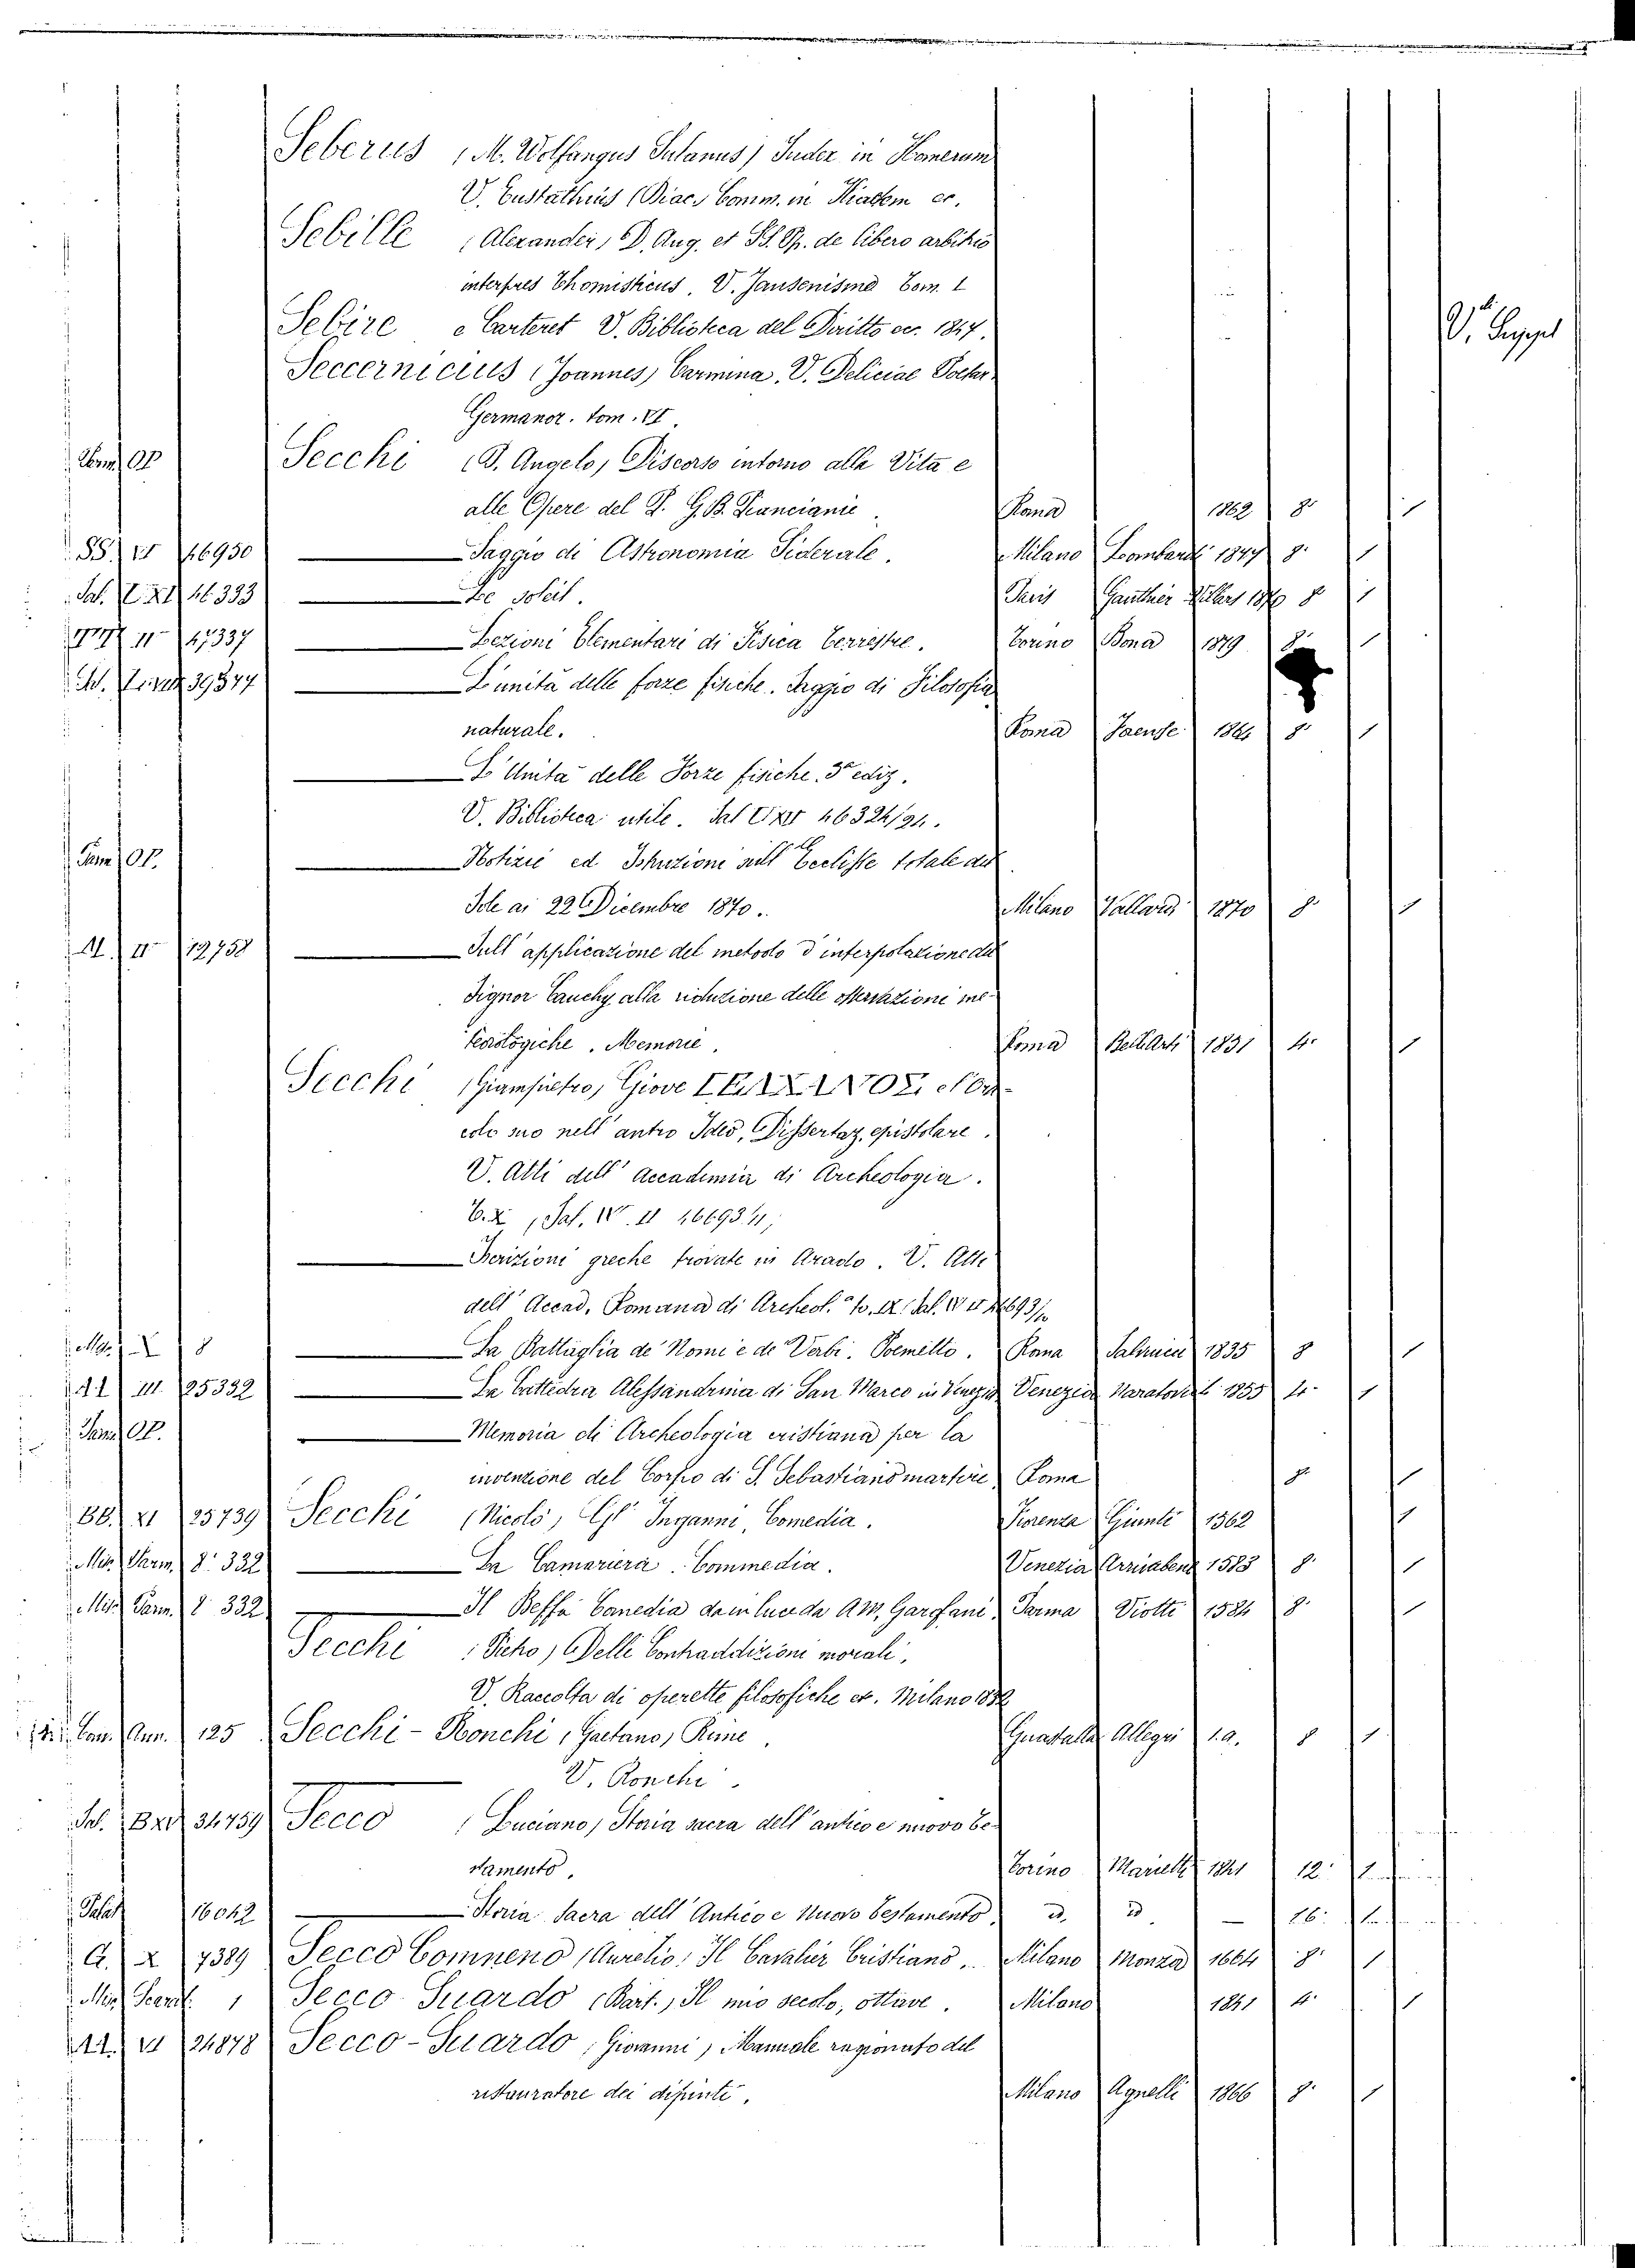 Seberus (M. Wolfangus Sulanus) Index in Homerum
V. Eustathius (Diac.) Comm. in Iliadem ec.
Sebille (Alexander) D. Aug. et SS. Pp. de libero arbitrio
interpres Thomisticus. V. Jansenismo Tom. 1
Sebire e Carteret V. Biblioteca del Diritto ec. 1847.
V. Suppl
Seccernicius (Joannes) Carmina. V. Deliciae Poetar.
Germanor. tom. VI.
Misc. OP Secchi (P. Angelo) Discorso intorno alla Vita e
alle Opere del P. G. B. Pianciani. Roma 1862 8° 1
SS. II 46950 Saggio di Astronomia Siderale. Milano Lombardi 1847 8° 1
Sal. 46333 Le Soleil. Paris Gauthier Villars 1870 8 1
II 47337 Lezioni Elementari di Fisica terrestre. Torino Bona 1879 8° 1
39847 L'unità delle forze fisiche. Saggio di Filosofia
naturale. Roma 1864 8° 1
L'Unità delle Forze fisiche. 3a ediz.
V. Biblioteca utile. Sal 46324/24.
OP. Notizie ed Istruzioni sull'Ecclisse totale del
Sole ai 22 Dicembre 1870. Milano Vallardi 1870 8° 1
II 12758 Sull'applicazione del metodo d'interpolazione del
Signor Cauchy alla riduzione delle osservazioni me-
teorologiche. Memorie. Roma Bell. Arti 1831 4° 1
Secchi (Giampietro) Giove e l'Ora-
colo suo nell'antro Ideo, Dissertaz. epistolare.
V. Atti dell'Accademia di Archeologia.
T. X (Sal. IV. II 46693.11)
Iscrizioni greche trovate in Arado. V. Atti
dell'Accad. Romana di Archeol. Sal. IV II 46693/
Misc. X 8 La Battaglia de' Nomi e de' Verbi. Poemetto. Roma Salviucci 1835 8 1
III 25332 La Cattedra Alessandrina di San Marco in Venezia Venezia Naratovich 1853 4° 1
OP. Memoria di Archeologia cristiana per la
invenzione del Corpo di S. Sebastiano martire Roma 8° 1
BB. XI 25739 Secchi (Nicolò) Gl'Inganni, Comedia. Fiorenza Giunti 1562 1
Mis. Parm. 8° 332 La Cameriera. Commedia. Venezia Arrivabene 1583 8° 1
Mis. Parm. 8 332 Il Beffa Comedia data in luce da Ant. Garofani Parma Viotti 1584 8° 1
Secchi (Pietro) Delle Contraddizioni morali,
V. Raccolta di operette filosofiche ec. Milano 1832
Ann. 125 Secchi-Ronchi (Gaetano) Rime. Guastalla Allegri s.a. 8 1
V. Ronchi.
Sal. 34759 Secco (Luciano) Storia sacra dell'antico e nuovo Te-
stamento. Torino Marietti 1841 12° 1
Palat 16042 Storia Sacra dell'Antico e Nuovo Testamento id. id. — 16° 1
G. X 7389 Secco Comneno (Aurelio) Il Cavalier Cristiano. Milano Monza 1664 8° 1
Mis. 1 Secco Suardo (Bart.) Il mio secolo, ottave. Milano 1841 4° 1
VI 24878 Secco-Suardo (Giovanni) Manuale ragionato del
ristauratore dei dipinti. Milano Agnelli 1866 8° 1